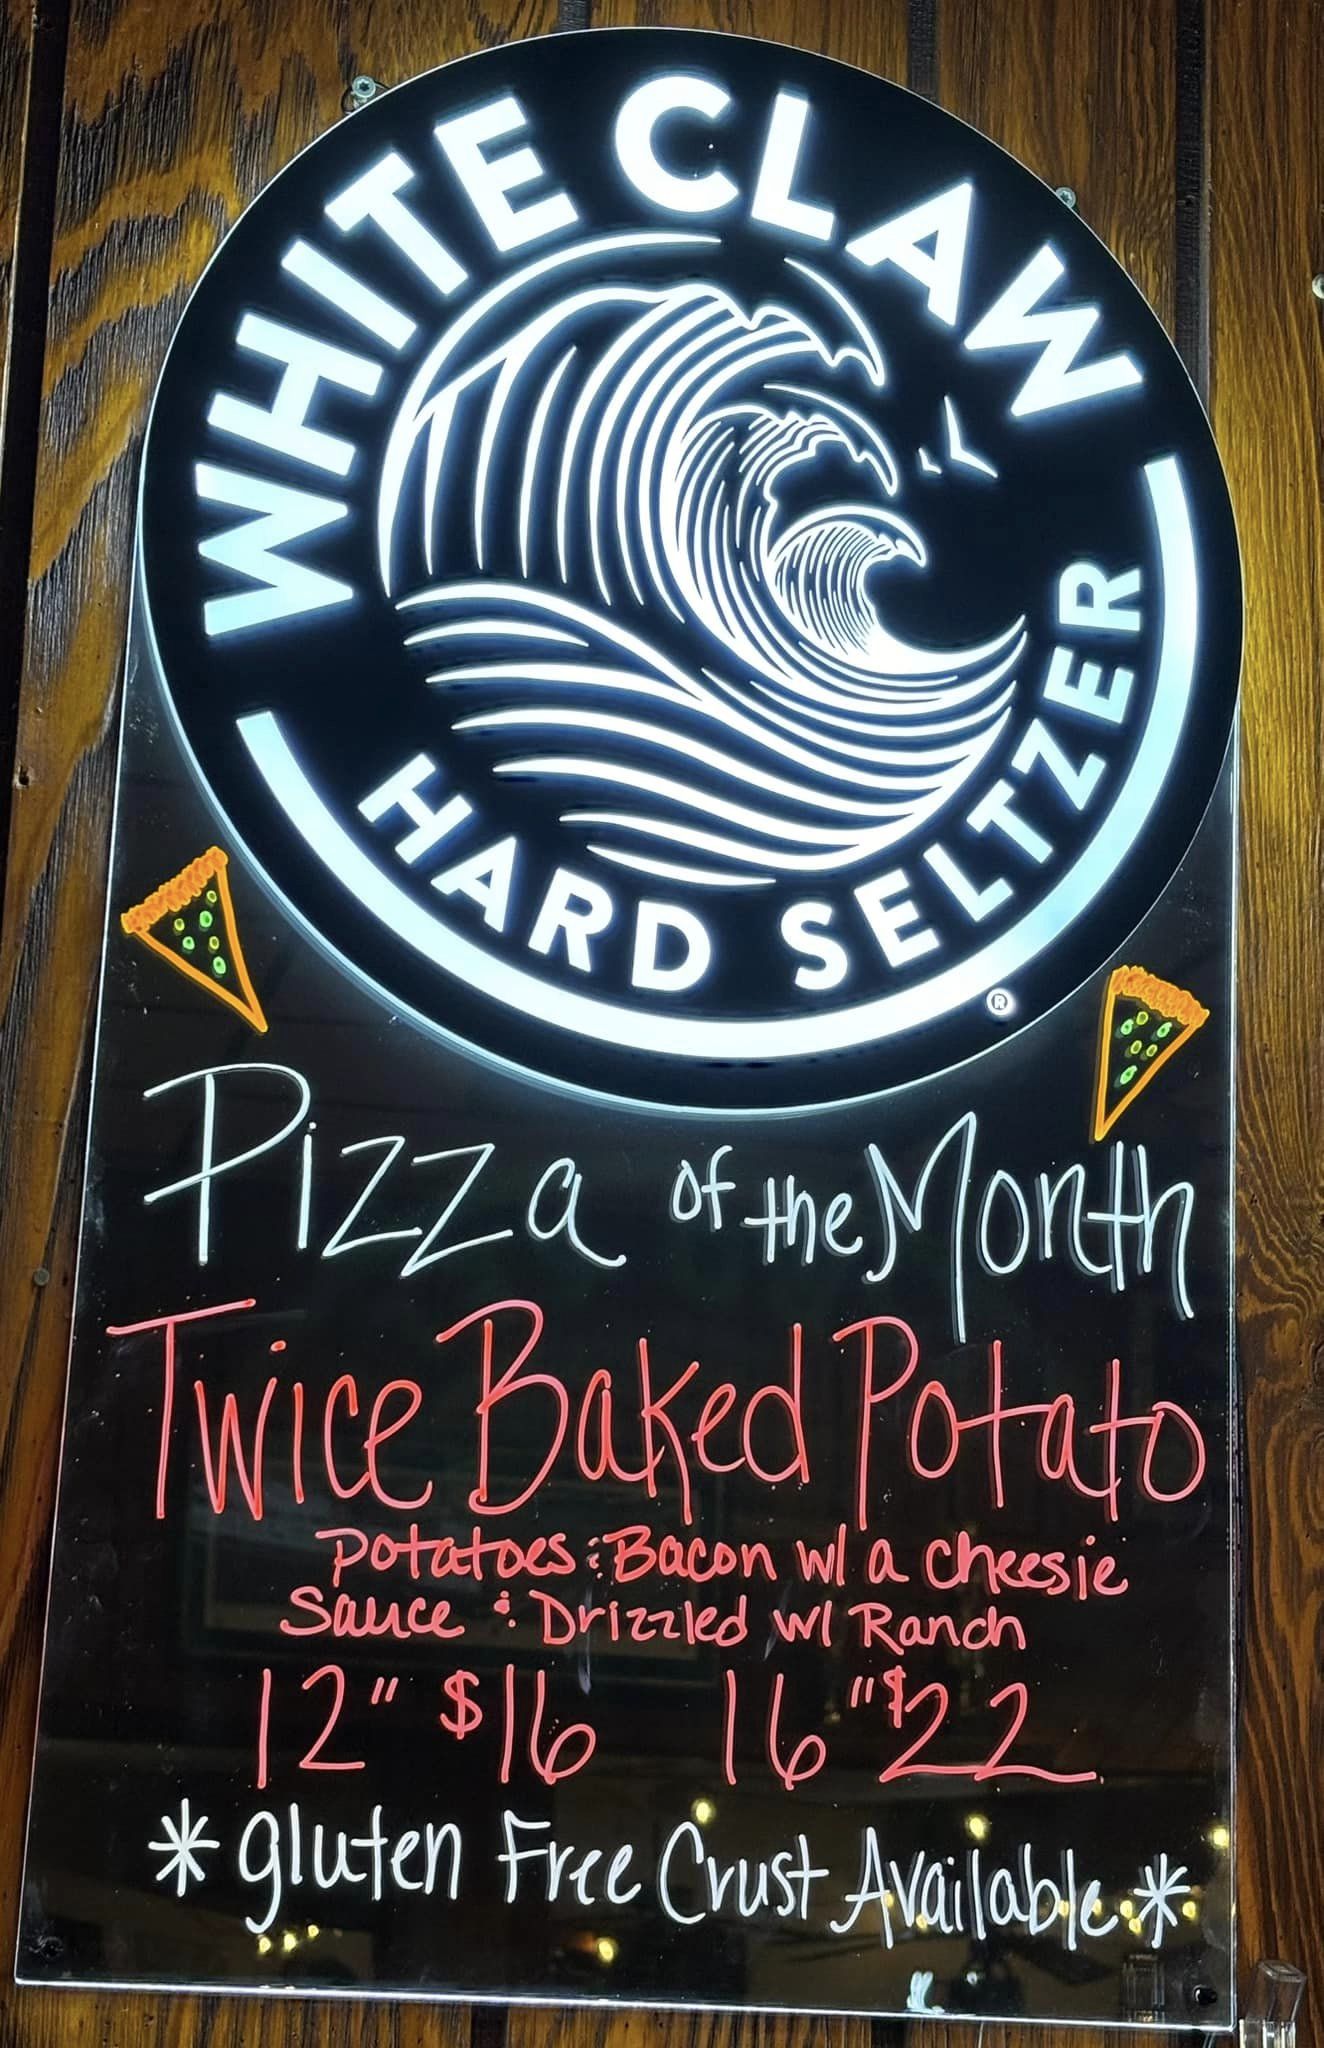 WHITE CLAW
HARD SELTZER
®
Pizza of the Month
Twice Baked Potato
Potatoes & Bacon w/ a cheesie
Sauce & Drizzled w/ Ranch
12" $16 16" $22
*gluten Free Crust Available*